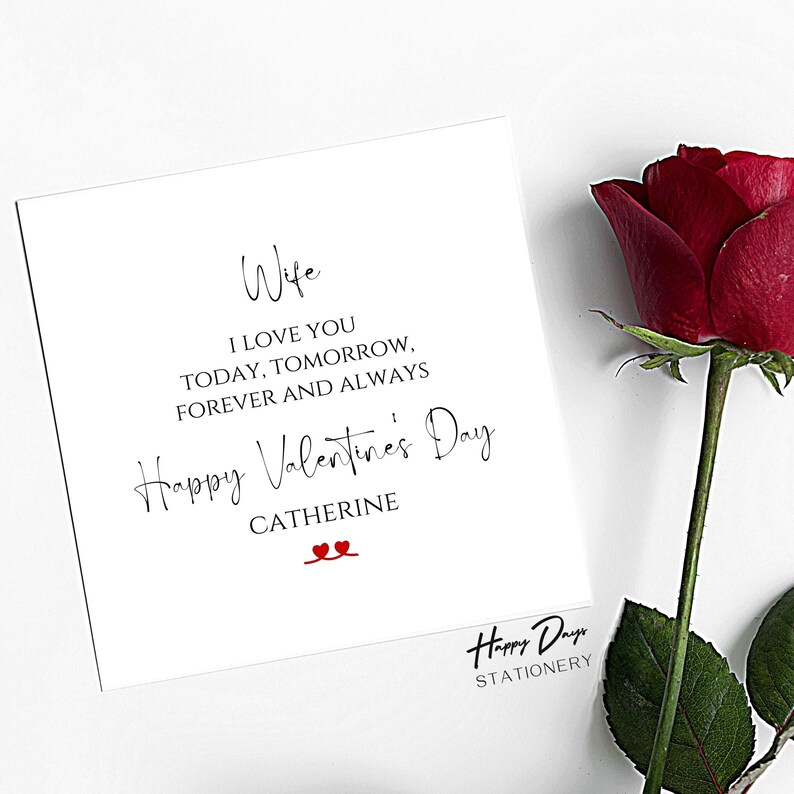 Wife
I LOVE YOU
TODAY, TOMORROW,
FOREVER AND ALWAYS
Happy Valentine's Day
CATHERINE
Happy Days
STATIONERY